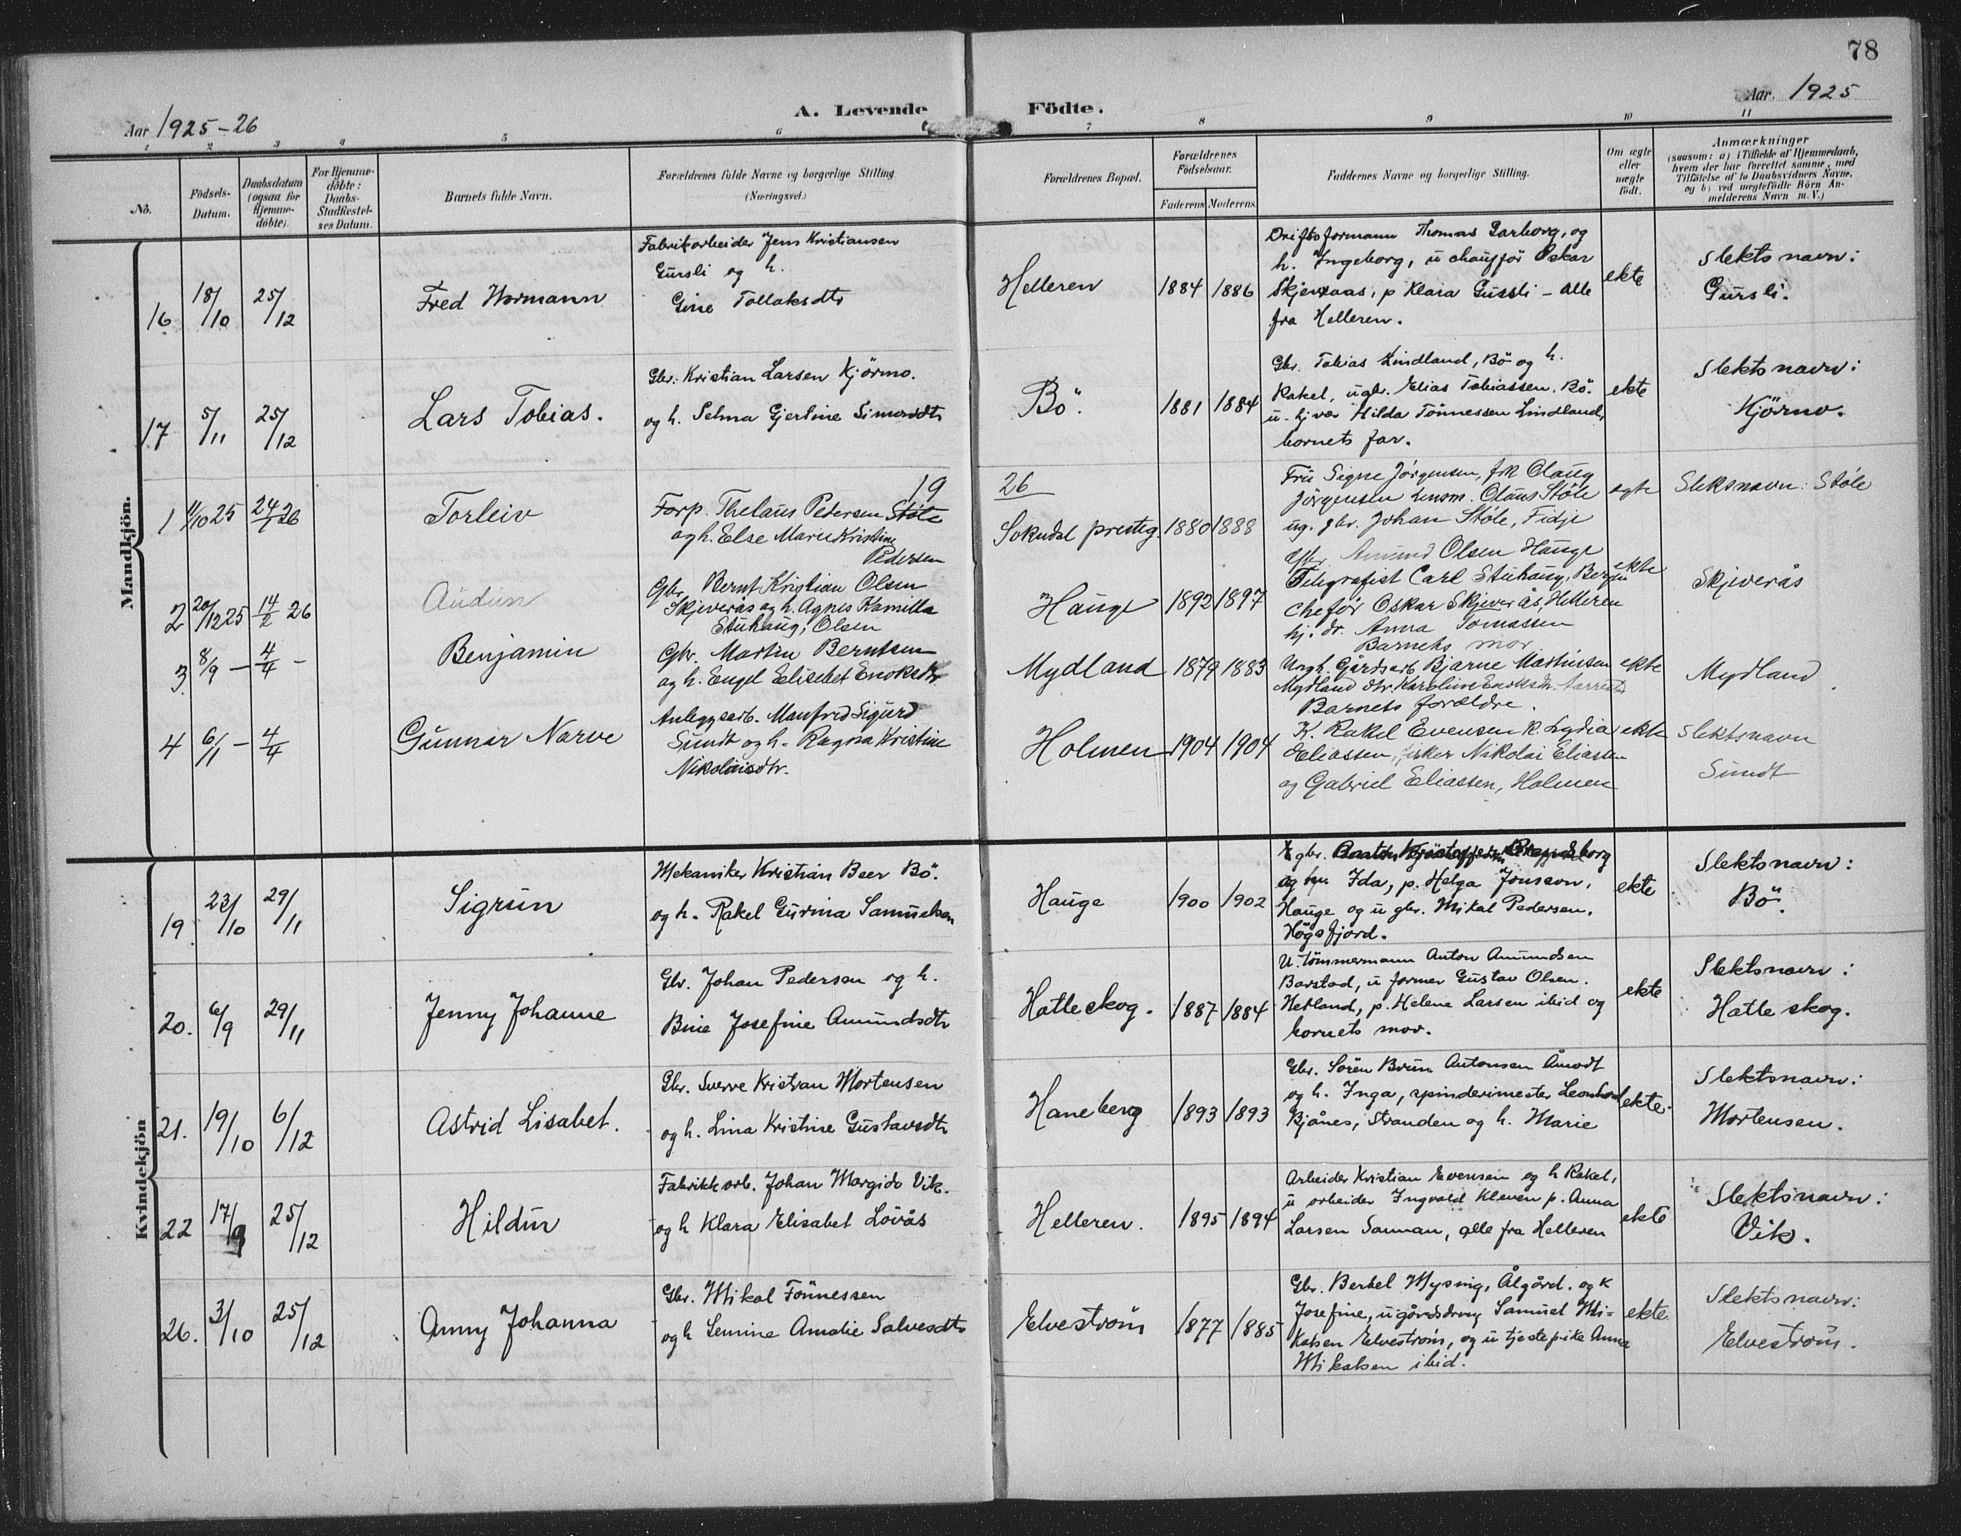 78
Aar 1925-26
A. Levende
Födte.
Aar. 1925
1
2
3
4
5
6
7
8
9
10
11
No.
Födsels-
Datum.
Daabsdatum
(ogsaa for
Hjemme-
döbte).
For Hjemme-
döbte:
Daabs-
Stadfæstel-
ses Datum.
Barnets fulde Navn.
Forældrenes fulde Navne og borgerlige Stilling
(Næringsvei.)
Forældrenes Bopæl.
Forældrenes
Födselsaar.
Faderens
Moderens.
Faddernes Navne og borgerlige Stilling.
Om ægte
eller
uægte
født.
Anmærkninger
(saasom: a) i Tilfælde af Hjemmedaab,
hvem der har forrettet samme, med
Tilføielse af to Daabsvidners Navne.
og b) ved uægtefødte Börn An-
melderens Navn m. V.)
Mandkjön.
16 18/10 25/12
Fred Normann
Fabrikarbeider Jens Kristiansen
Gursli og h.
Gine Tollaksdtr
Helleren
1884 1886
Driftsformann Thomas Garborg, og
h. Ingeborg, u chauffør Oskar
Skjeveraas, p Klara Gursli - alle
fra Helleren.
ekte
Slektsnavn:
Gursli.
17 5/11 25/12
Lars Tobias.
Gbr. Kristian Larsen Kjörmo.
og h. Selma Gjertine Simonsdtr
Bö.
1881 1884
Gbr. Tobias Lindland, Bö og h.
Rakel, u gbr. Elias Tobiassen. Bö.
u. Hilda Tönnessen Lindland,
barnets far.
ekte
Slektsnavn:
Kjörmo.
19
26
1 11/10 25 24/1 26
Torleiv
Forp. Thelaus Pedersen Støle
og h. Else Marie Kristine
Pedersen
Sokndal presteg.
1880 1888
Fru Signe Jörgensen, frk Olaug
Jörgensen Lensm. Claus Støle
ug. gbr. Johan Støle, Fidje
egte
Sleksnavn: Støle
2 20/12 25 14/2 26
Audun
Gbr. Bernt Kristian Olsen
Skjeverås og h. Agnes Kamilla
Stuhaug, Olsen
Hauge
1892 1897
Gbr. Amund Olsen Hauge
Telegrafist Carl Stuhaug, Bergen
Cheför Oskar Skjeverås, Helleren
hj. dr. Anna Tomassen
Barnets mor
ekte
Skjeverås
3. 8/9 - 4/4 -
Benjamin
Gbr. Martin Berntsen
og h. Engel Elisebet Enoksdtr.
Mydland
1879 1883
Ungk. Gårdsarb Bjarne Martinsen
Mydland dtr. Karoline Enoksdtr
Barnets forældre.
ekte
Mydland
4 6/1 - 4/4
Gunnar Narve
Anleggsarb. Manfred Sigurd
Sundt og h. Ragna Kristine
Nikolaisdtr.
Holmen
1904 1904
K. Rakel Evensen k. Lydia
Eliassen, fisker Nikolai Eliassen
og Gabriel Eliassen, Holmen
ekte
Slektsnavn
Sundt
Kvindekjön
19 22/10 29/11
Sigrun
Mekaniker Kristian Beer Bö.
og h. Rakel Gurina Samuelsen
Hauge
1900 1902
gbr.
og Ida, p. Helga Jonsson,
Hauge og u gbr. Mikal Pedersen.
Högsfjord.
ekte
Slektsnavn:
Bö.
20. 6/9 29/11
Jenny Johanne
Gbr. Johan Pedersen og h.
Bine Josefine Amundsdtr
Hatleskog.
1887 1884
U. tömmermann Anton Amundsen
Barstad, u former Gustav Olsen.
Hetland, p. Helene Larsen ibid og
barnets mor.
ekte
Slektsnavn:
Hatleskog.
21. 19/10 6/12
Astrid Lisabet.
Gbr. Sverre Kristian Mortensen
og h. Lina Kristine Gustavsdtr
Haneberg
1893 1893
Gbr. Sören Brun Antonsen Åmodt
og h. Inga, spinderimester Leonhard
Bjånes, Stranden og h. Marie
ekte.
Slektsnavn:
Mortensen.
22 17/9 25/12
Hildur
Fabrikkarb. Johan Margido Vik.
og h Klara Elisabet Lövås
Helleren.
1895 1894
Arbeider Kristian Evensen og h Rakel,
u arbeider Ingvald Kleven p. Anna
Larsen Sanman, alle fra Helleren
ekte
Slektsnavn:
Vik.
26. 3/10 25/12
Anny Johanna
Gbr. Mikal Tönnessen
og h Lemine Amalie Salvesdtr
Elveström
1877 1885
Gbr. Bertel Mysing, Ålgård. og k
Josefine, u gårdsdreng Samuel Mi-
kalsen Elveström, og u tjestepike Anna
Mikalsen ibid.
ekte
Slektsnavn:
Elveström.